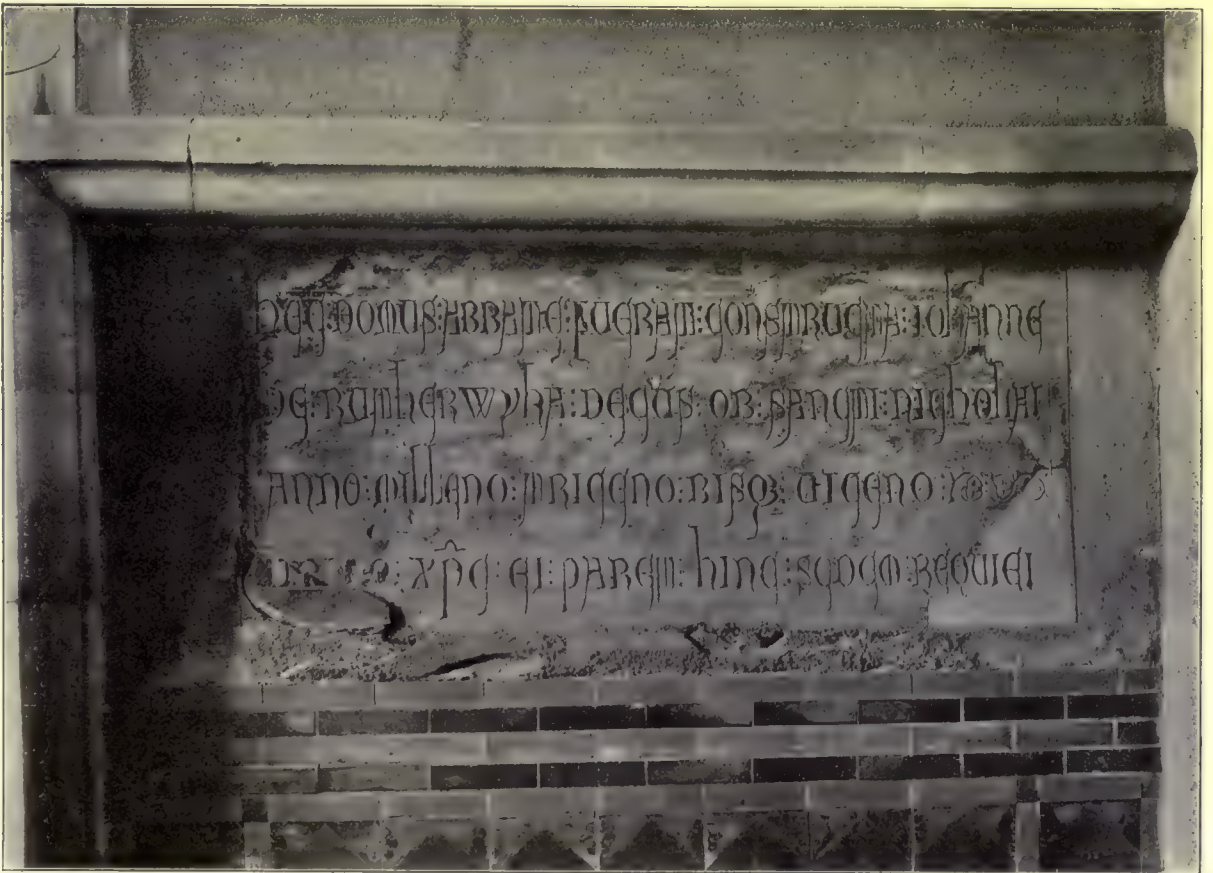 HEC:DOMUS:ABBATE:FUERAT:CONSTRUCTA:IOHANNE
DE:RUTHERWYKA:DECUS:OB:SANCTI:NICHOLAI
ANNO:MILLENO:TRICENO:BISQ:VICENO
PRIMO:XP̂C:EI:PARET:HINC:SEDEM:REQUIEI